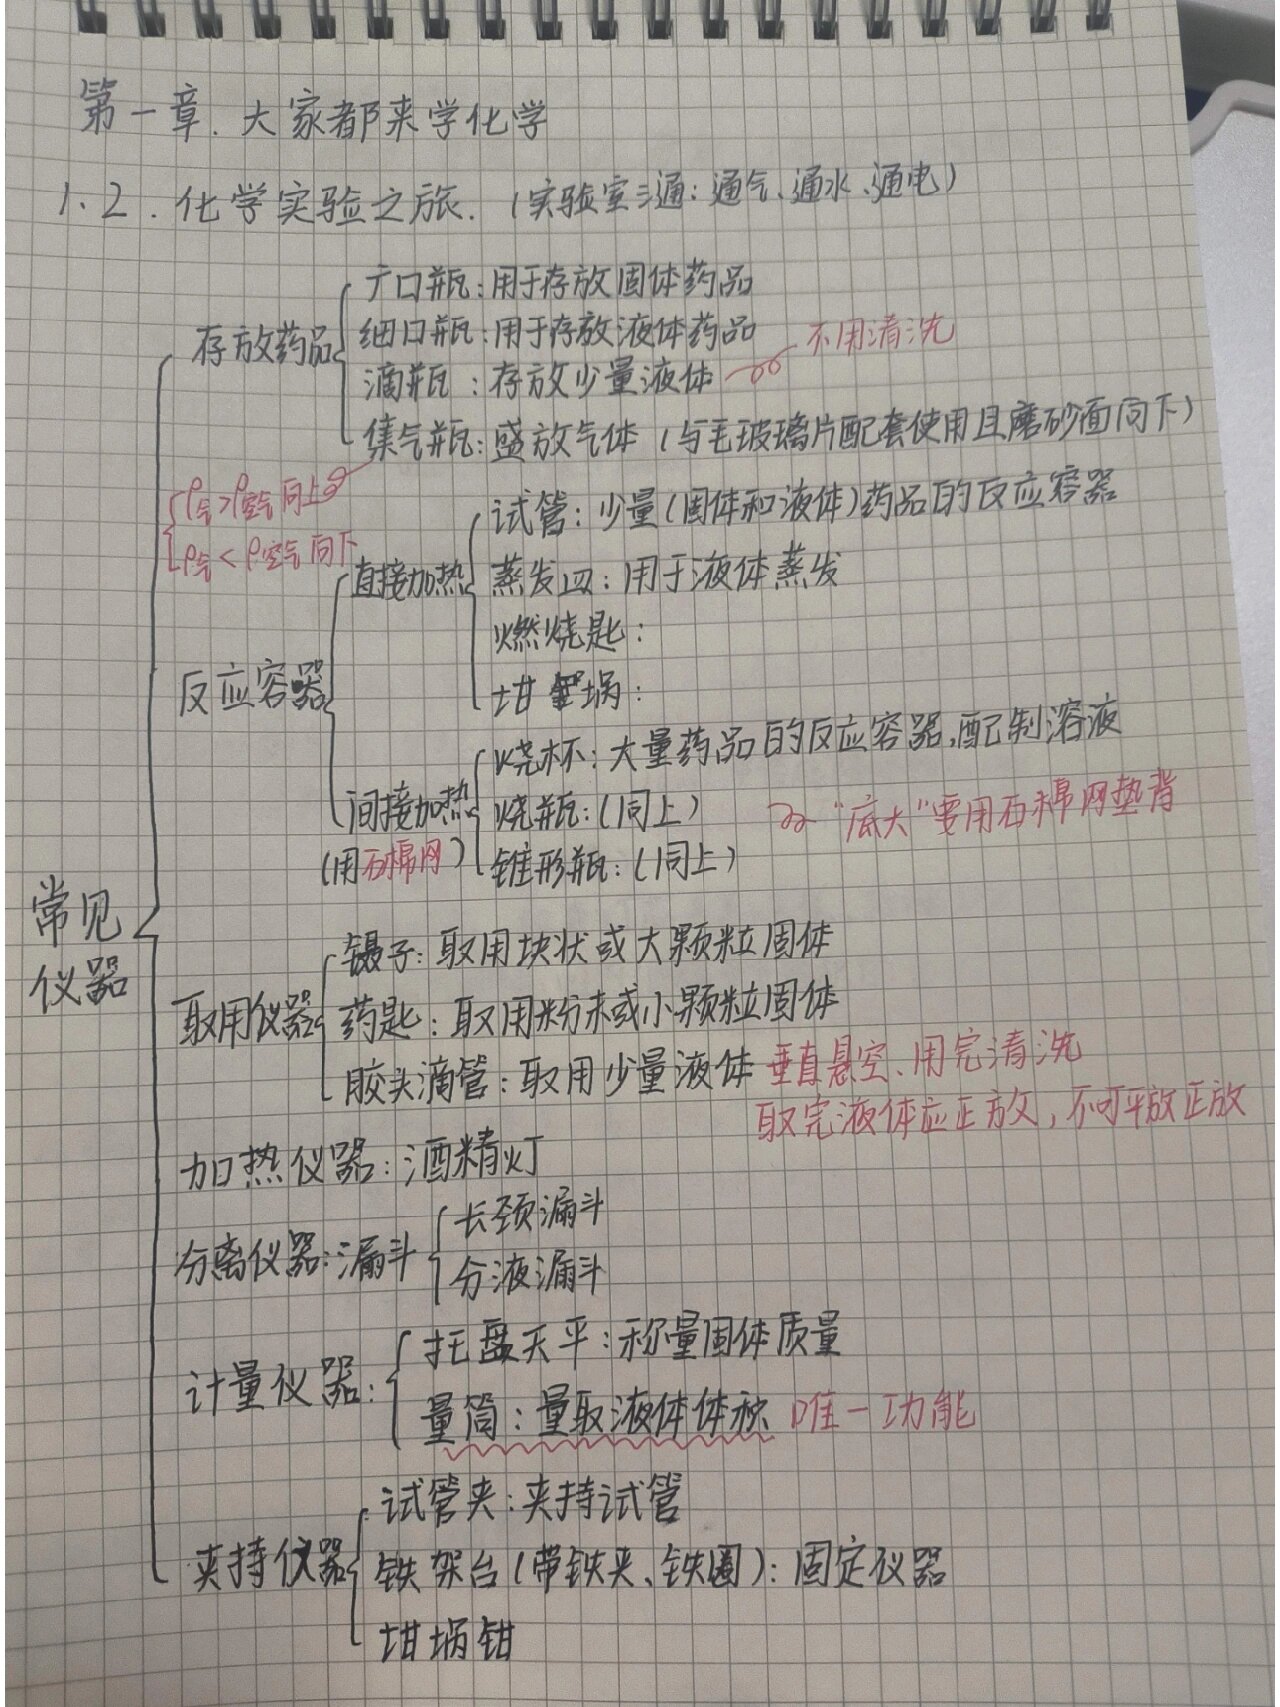 第一章.大家都来学化学
1.2.化学实验之旅.(实验室三通:通气、通水、通电)
广口瓶:用于存放固体药品
存放药品
细口瓶:用于存放液体药品
不用清洗
滴瓶:存放少量液体
集气瓶:盛放气体(与毛玻璃片配套使用且磨砂面向下)
ρ气>ρ空气向上
ρ气<ρ空气向下
试管:少量(固体和液体)药品的反应容器
直接加热
蒸发皿:用于液体蒸发
燃烧匙:
反应容器
坩埚:
烧杯:大量药品的反应容器,配制溶液
间接加热
烧瓶:(同上)
"底大"要用石棉网垫背
(用石棉网)
锥形瓶:(同上)
常见
仪器
镊子:取用块状或大颗粒固体
取用仪器
药匙:取用粉末或小颗粒固体
胶头滴管:取用少量液体 垂直悬空、用完清洗
取完液体应正放,不可平放正放
加热仪器:酒精灯
分离仪器:漏斗
长颈漏斗
分液漏斗
计量仪器:
托盘天平:称量固体质量
量筒:量取液体体积 唯一功能
试管夹:夹持试管
夹持仪器
铁架台(带铁夹、铁圈):固定仪器
坩埚钳